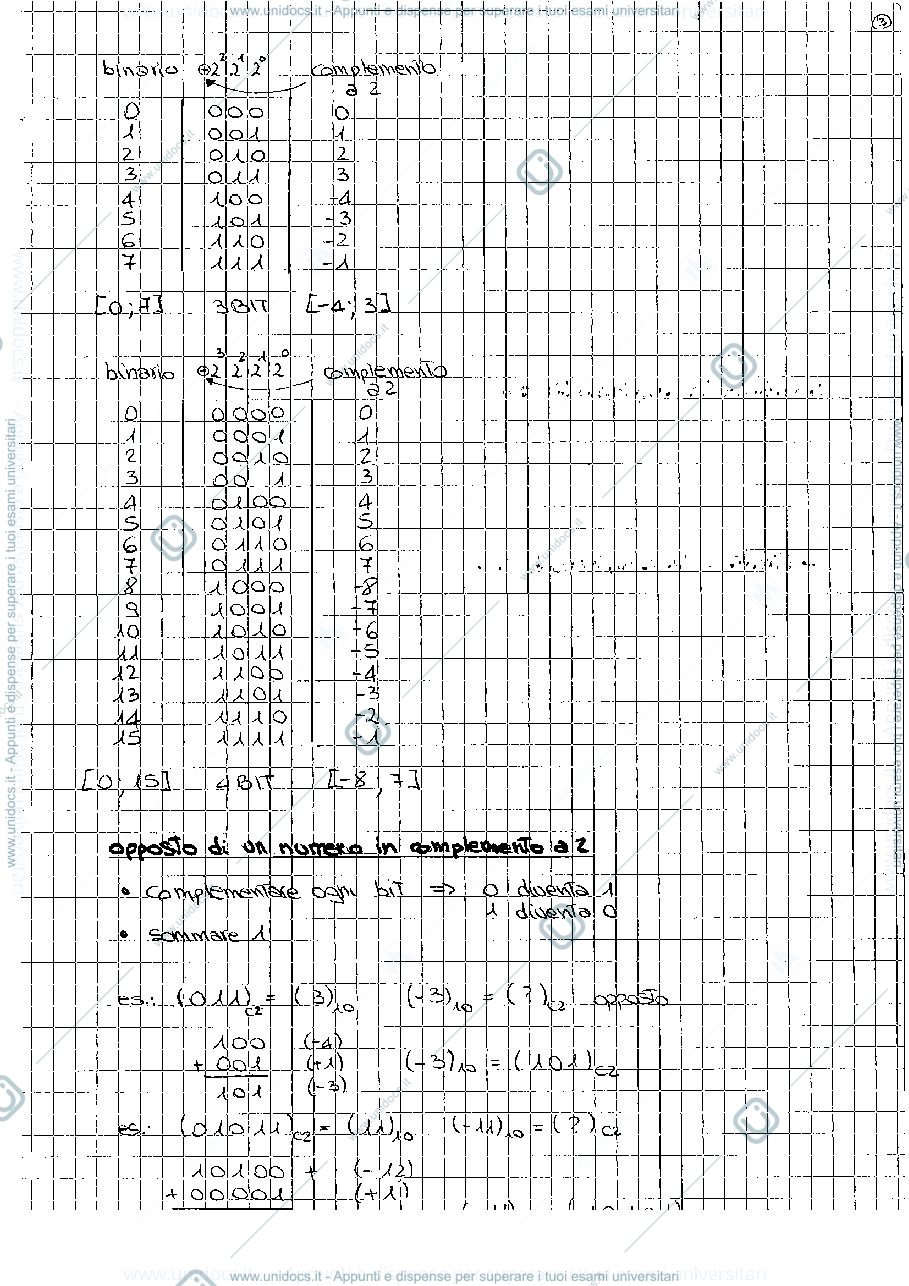 www.unidocs.it - Appunti e dispense per superare i tuoi esami universitari
3
binario ⊕2² 2¹ 2⁰ complemento
a 2
0 000 0
1 001 1
2 010 2
3 011 3
4 100 -4
5 101 -3
6 110 -2
7 111 -1
[0;7] 3BIT [-4;3]
binario ⊕2³ 2² 2¹ 2⁰ complemento
a 2
0 0000 0
1 0001 1
2 0010 2
3 00 1 3
4 0100 4
5 0101 5
6 0110 6
7 0111 7
8 1000 -8
9 1001 -7
10 1010 -6
11 1011 -5
12 1100 -4
13 1101 -3
14 1110 -2
15 1111 -1
[0;15] 4BIT [-8,7]
opposto di un numero in complemento a 2
• complementare ogni bit => 0 diventa 1
1 diventa 0
• sommare 1
es.: (011)C2 = (3)10 (-3)10 = (?)C2 opposto
100 (-4)
+ 001 (+1) (-3)10 = (101)C2
101 (-3)
es.: (01011)C2 = (11)10 (-11)10 = (?)C2
10100 + (-12)
+ 00001 (+1)
www.unidocs.it - Appunti e dispense per superare i tuoi esami universitari